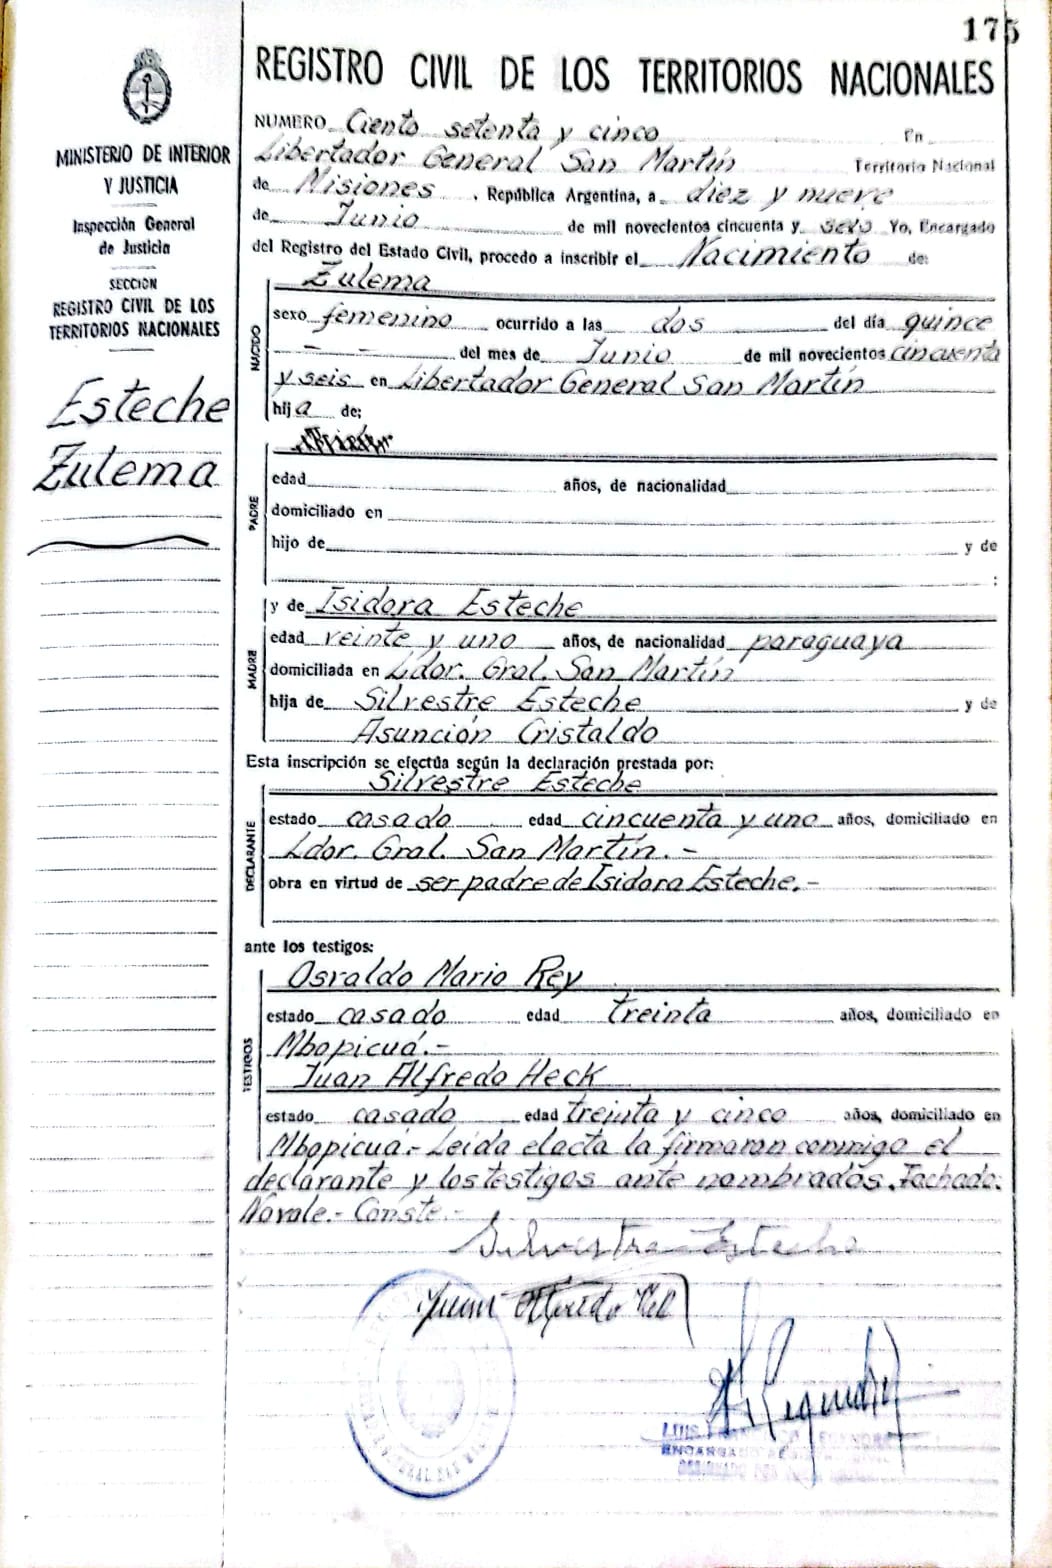 175
REGISTRO CIVIL DE LOS TERRITORIOS NACIONALES
MINISTERIO DE INTERIOR
Y JUSTICIA
Inspección General
de Justicia
SECCIÓN
REGISTRO CIVIL DE LOS
TERRITORIOS NACIONALES
Esteche
Zulema
NUMERO Ciento setenta y cinco En
Libertador General San Martín Territorio Nacional
de Misiones, República Argentina, a diez y nueve
de Junio de mil novecientos cincuenta y seis Yo, Encargado
del Registro del Estado Civil, procedo a inscribir el Nacimiento de:
NACIDO
Zulema
sexo femenino ocurrido a las dos del día quince
- - del mes de Junio de mil novecientos cincuenta
y seis en Libertador General San Martín
hija de;
PADRE
edad años, de nacionalidad
domiciliado en
hijo de y de
:
MADRE
y de Isidora Esteche
edad veinte y uno años, de nacionalidad paraguaya
domiciliada en Ldor. Gral. San Martín
hija de Silvestre Esteche y de
Asunción Cristaldo
Esta inscripción se efectúa según la declaración prestada por:
DECLARANTE
Silvestre Esteche
estado casado edad cincuenta y uno años, domiciliado en
Ldor. Gral. San Martín.-
obra en virtud de ser padre de Isidora Esteche.-
ante los testigos:
TESTIGOS
Osvaldo Mario Rey
estado casado edad treinta años, domiciliado en
Mbopicuá.-
Juan Alfredo Heck
estado casado edad treinta y cinco años, domiciliado en
Mbopicuá.- Leída el acta la firmaron conmigo el
declarante y los testigos ante nombrados. Tachado:
No vale.- Conste.-
Silvestre Esteche
Juan Alfredo
LUIS
ENCARGADO